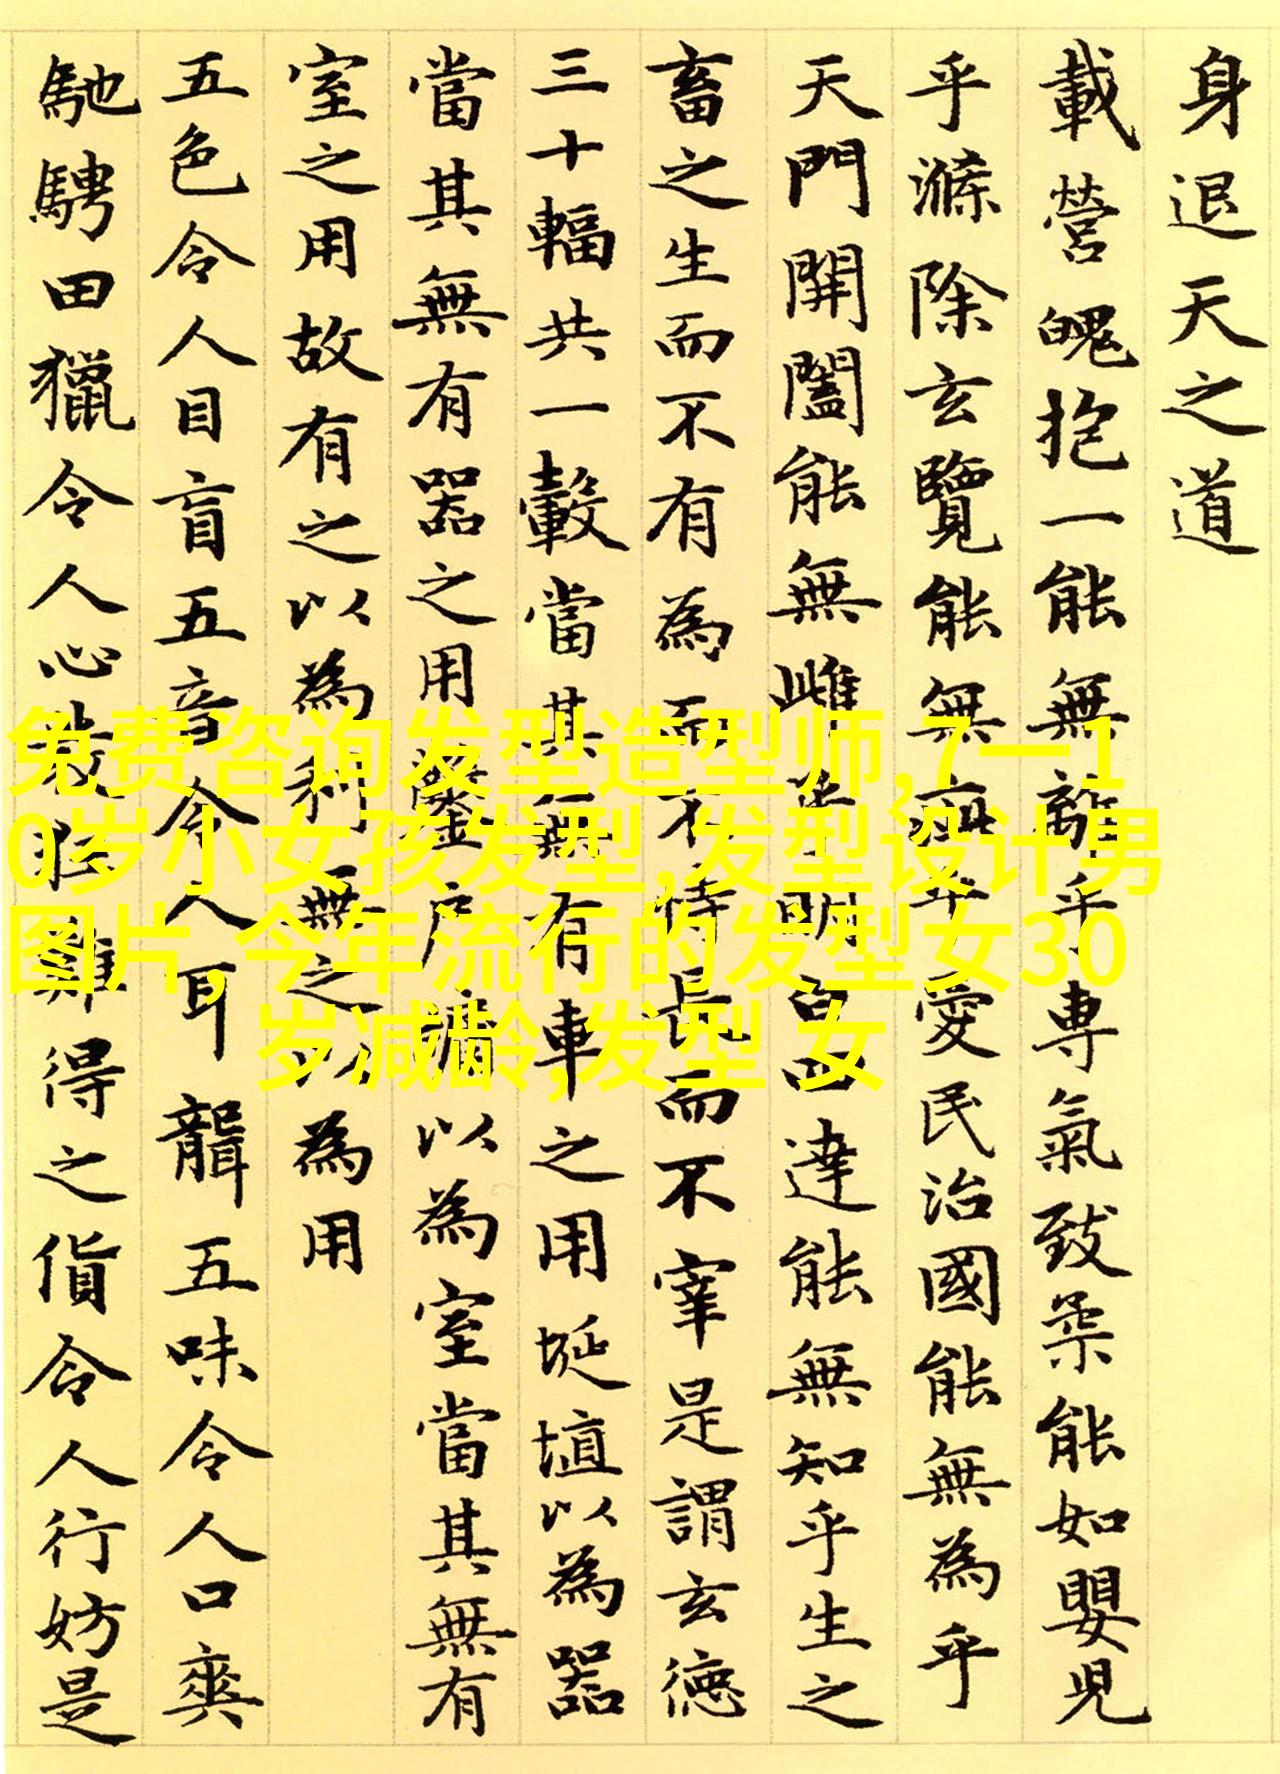 身退天之道
載營魄抱一能無離乎專氣致柔能如嬰児
乎滌除玄覽能無疵乎愛民治國能無為乎
天門開闔能無雌乎明白四達能無知乎生之
畜之生而不有為而不恃長而不宰是謂玄德
三十輻共一轂當其無有車之用埏埴以為器
當其無有器之用鑿户牖以為室當其無有
室之用故有之以為利無之以為用
五色令人目盲五音令人耳聾五味令人口爽
馳騁田獵令人心發狂難得之貨令人行妨是
免费咨询发型造型师,7一1
0岁小女孩发型,发型设计男
图片,今年流行的发型女30
岁减龄,发型 女